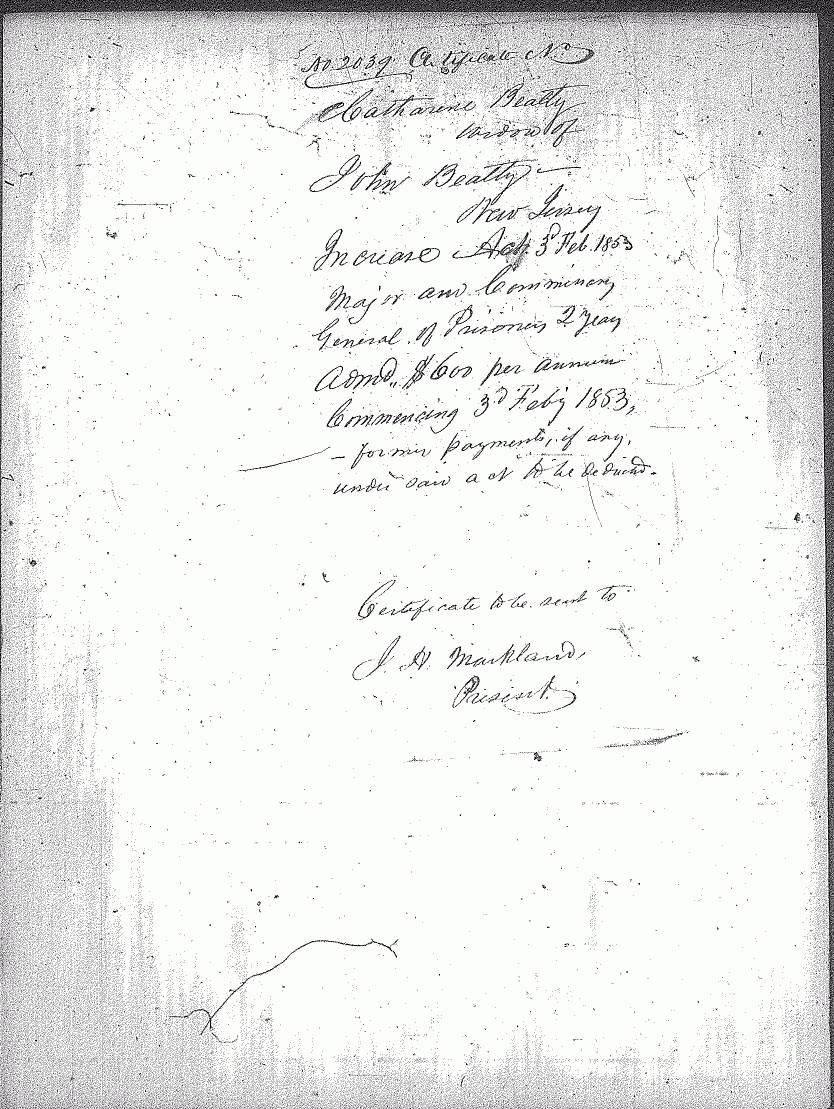 No 2039 Certificate No
Catharine Beatty
widow of
John Beatty
New Jersey
Increase Act 3d Feb. 1853
Major and Commissary
General of Prisoners 2 years
Admd. $600 per annum
Commencing 3d Feby 1853,
- former payments, if any,
under said act to be deducted.
Certificate to be sent to
J. H. Markland,
Present.